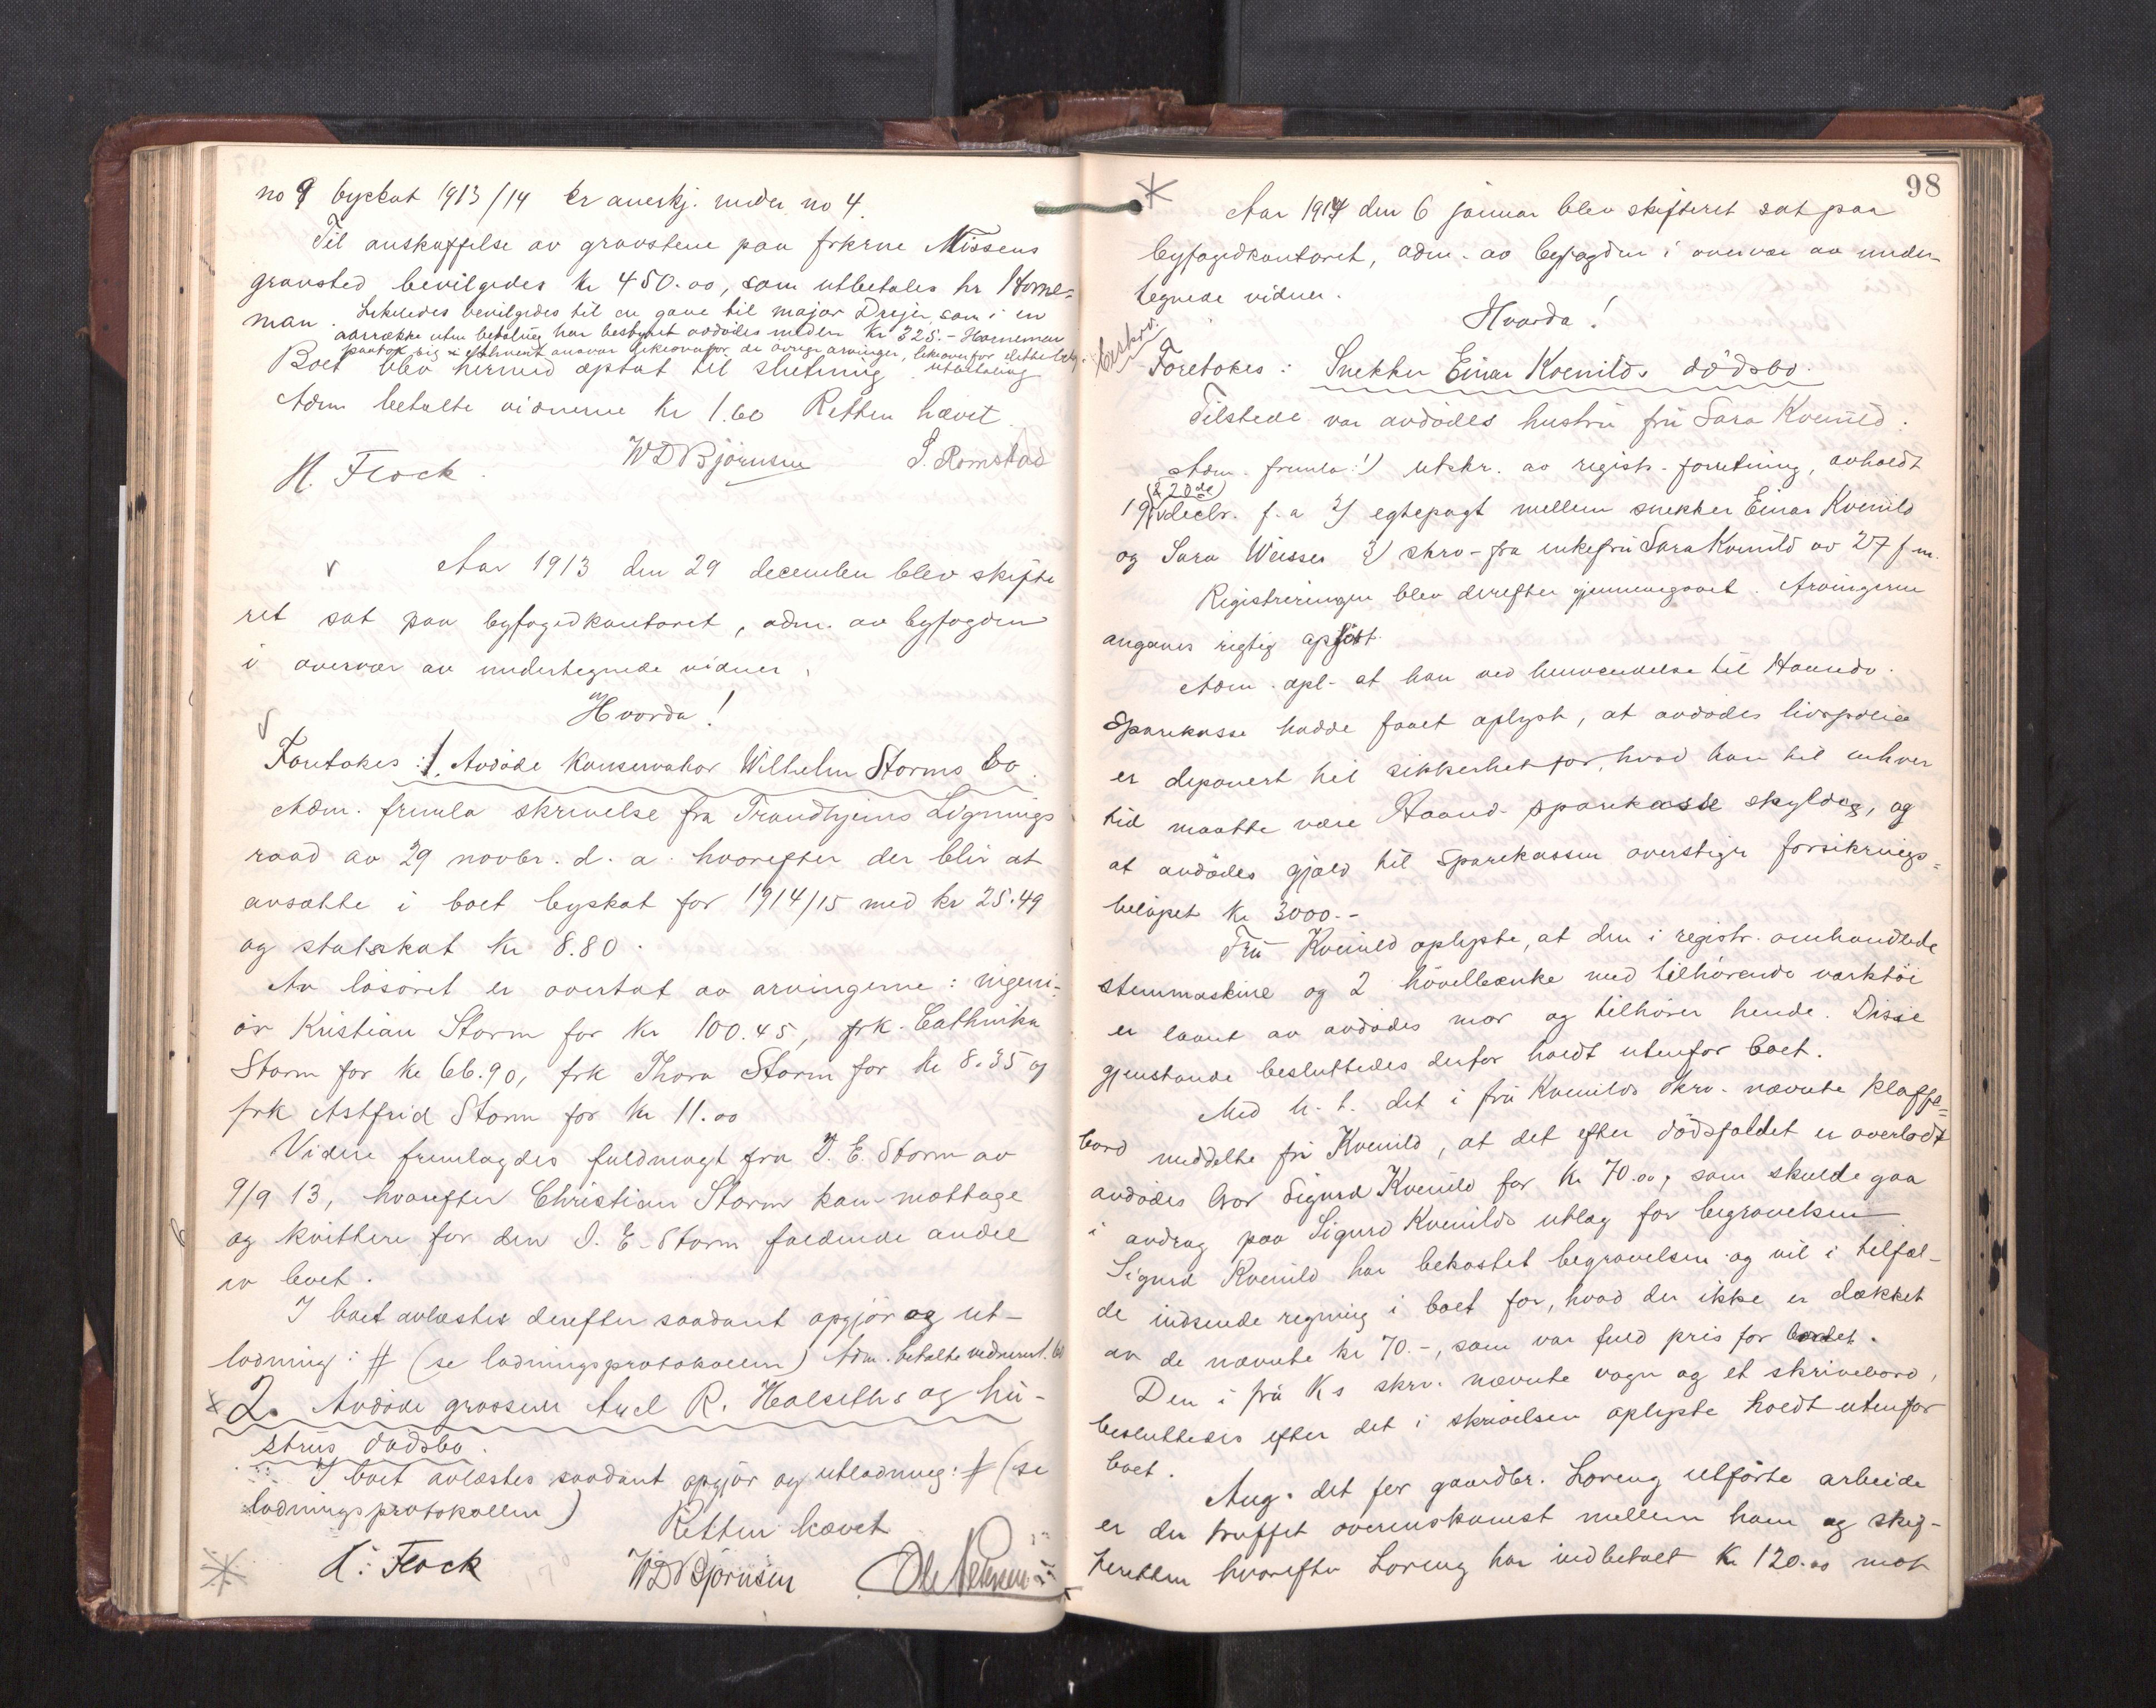 no 9 byskat 1913/14 er anerkj. under no 4.
Til anskaffelse av gravstene paa frkrne Missens
gravsted bevilgedes kr 450.00, som utbetales hr Horne-
man. Likeledes bevilgedes til en gave til major Drejer, som i en
aarrække uten betaling har bestyret avdødes midler kr 325.- Horneman
paatok sig ansvar likeoverfor de øvrige arvinger, likeoverfor dette beløps
Boet blev hermed optat til slutning utbetaling
Adm betalte vidnerne kr 1.60 Retten hævet
H. Flock. WD Bjørnsen S. Romstad
Aar 1913 den 29 december blev skifte
ret sat paa byfogedkontoret, adm. av byfogden
i overvær av undertegnede vidner.
Hvorda!
Foretokes: 1. Avdøde Konservator Wilhelm Storms bo.
Adm. fremla skrivelse fra Trondhjems Lignings
raad av 29 novbr. d. a. hvorefter der blir at
avsætte i boet byskat for 1914/15 med kr 25.49
og statsskat kr 8.80.
Av løsøret er overtat av arvingerne: ingeni-
ør Kristian Storm for kr 100.45, frk. Cathinka
Storm for kr 66.90, frk Thora Storm for kr 8.35 og
frk Astfrid Storm for kr 11.00
Videre fremlagdes fuldmagt fra I. E. Storm av
9/9 13, hvorefter Christian Storm kan mottage
og kvittere for den I. E. Storm faldende andel
av boet.
I boet avlæstes derefter saadant opgjør og ut-
lodning: # (se lodningsprotokollen) Adm. betalte vidnerne 1.60
2. Avdøde grosserer Axel R. Halseths og hu-
strus dødsbo.
I boet avlæstes saadant opgjør og utlodning: # (se
lodningsprotokollen)
Retten hævet
H. Flock WD Bjørnsen Ole Petersen
98
Aar 1914 den 6 januar blev skifteret sat paa
byfogedkontoret, adm. av byfogden i overvær av under-
tegnede vidner.
Hvorda!
Beskrv.
Foretokes: Snekker Einar Kvenilds dødsbo.
Tilstede var avdødes hustru fru Sara Kvenild.
Adm. fremla: 1) utskr. av registr.-forretning, avholdt
(& 20de)
19 decbr. f. a 2) egtepagt mellem snekker Einar Kvenild
og Sara Weisser 3) skrv- fra enkefru Sara Kvenild av 27 f. m.
Registreringen blev derefter gjennemgaaet. Arvingerne
angaves rigtig opført.
Adm. opl. at han ved henvendelse til Haandv.
Sparekasse hadde faaet oplyst, at avdødes livspolice
er deponert til sikkerhet for, hvad han til enhver
tid maatte være Haand. sparekasse skyldig, og
at avdødes gjæld til Sparekassen overstiger forsikrings-
beløpet kr 3000.-
Fru Kvenild oplyste, at den i registr. omhandlede
stemmaskine og 2 høvelbænke med tilhørende værktøi
er laant av avdødes mor og tilhører hende. Disse
gjenstande besluttedes derfor holdt utenfor boet.
Med h. t. det i fru Kvenilds skrv. nævnte klaffe-
bord meddelte fru Kvenild, at det efter dødsfaldet er overlodt
avdødes bror Sigurd Kvenild for kr 70.00, som skulde gaa
i avdrag paa Sigurd Kvenilds utlæg for begravelsen
Sigurd Kvenild har bekostet begravelsen og vil i tilfæl-
de indsende regning i boet for, hvad der ikke er dækket
av de nævnte kr 70.-, som var fuld pris for bordet.
Den i fru Ks skrv. nævnte vogn og et skrivebord,
besluttedes efter det i skrivelsen oplyste holdt utenfor
boet.
Ang. det for gaardbr. Loreng utførte arbeide
er der truffet overenskomst mellem ham og skif-
teretten hvorefter Loreng har indbetalt kr 120.00 mot